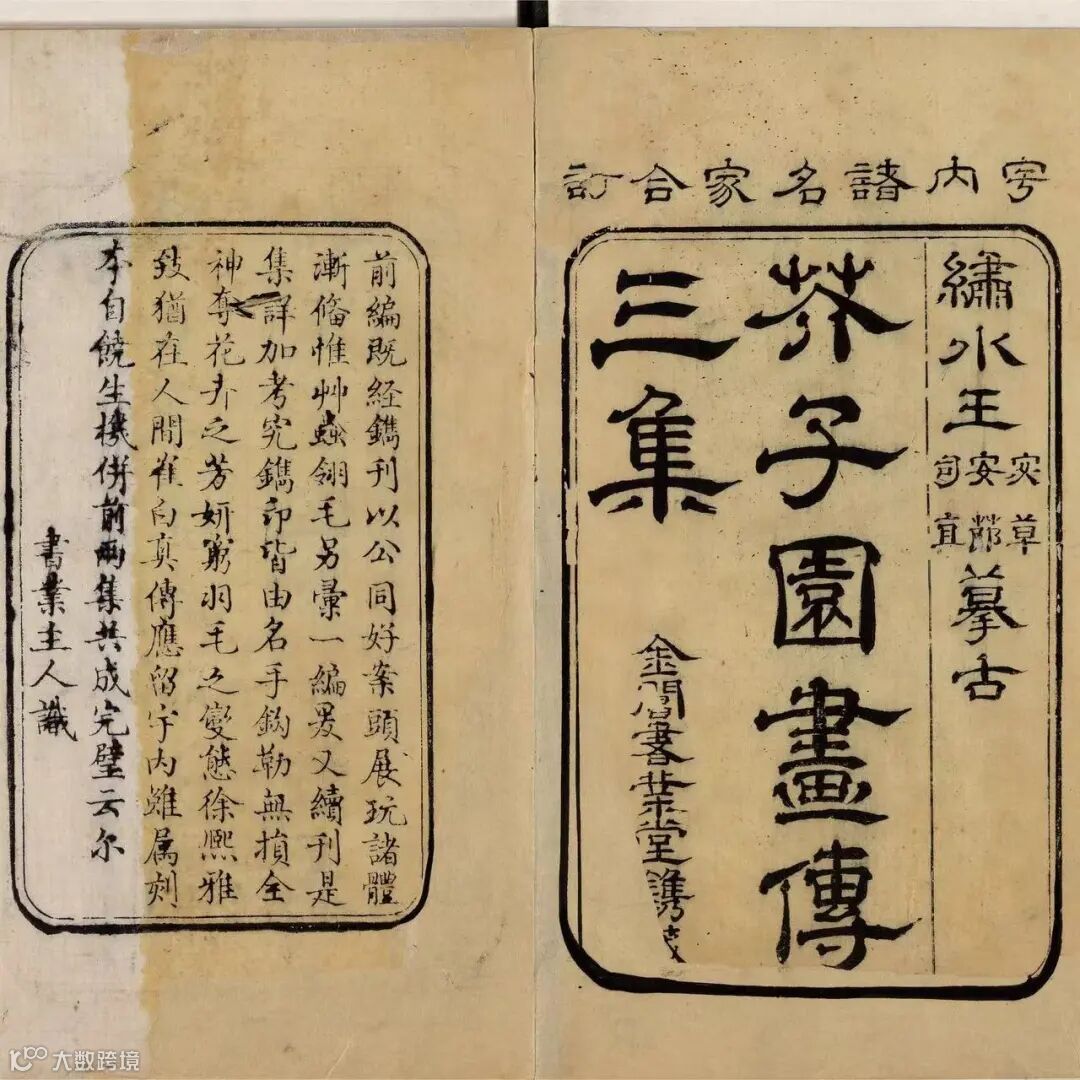 宇內諸名家合訂
繡水王宓草安節司直摹古
芥子園畫傳
三集
金閶書業堂鐫藏
前編既経鐫刊以公同好案頭展玩諸體
漸俻惟艸蟲翎毛另彙一編爰又續刊是
集詳加考究鐫印皆由名手鈎勒無損全
神奪花卉之芳妍窮羽毛之變態徐熈雅
致猶在人間崔白真傳應留宇內雖属刻
本自饒生機併前兩集共成完璧云尔
書業主人識
大数跨境